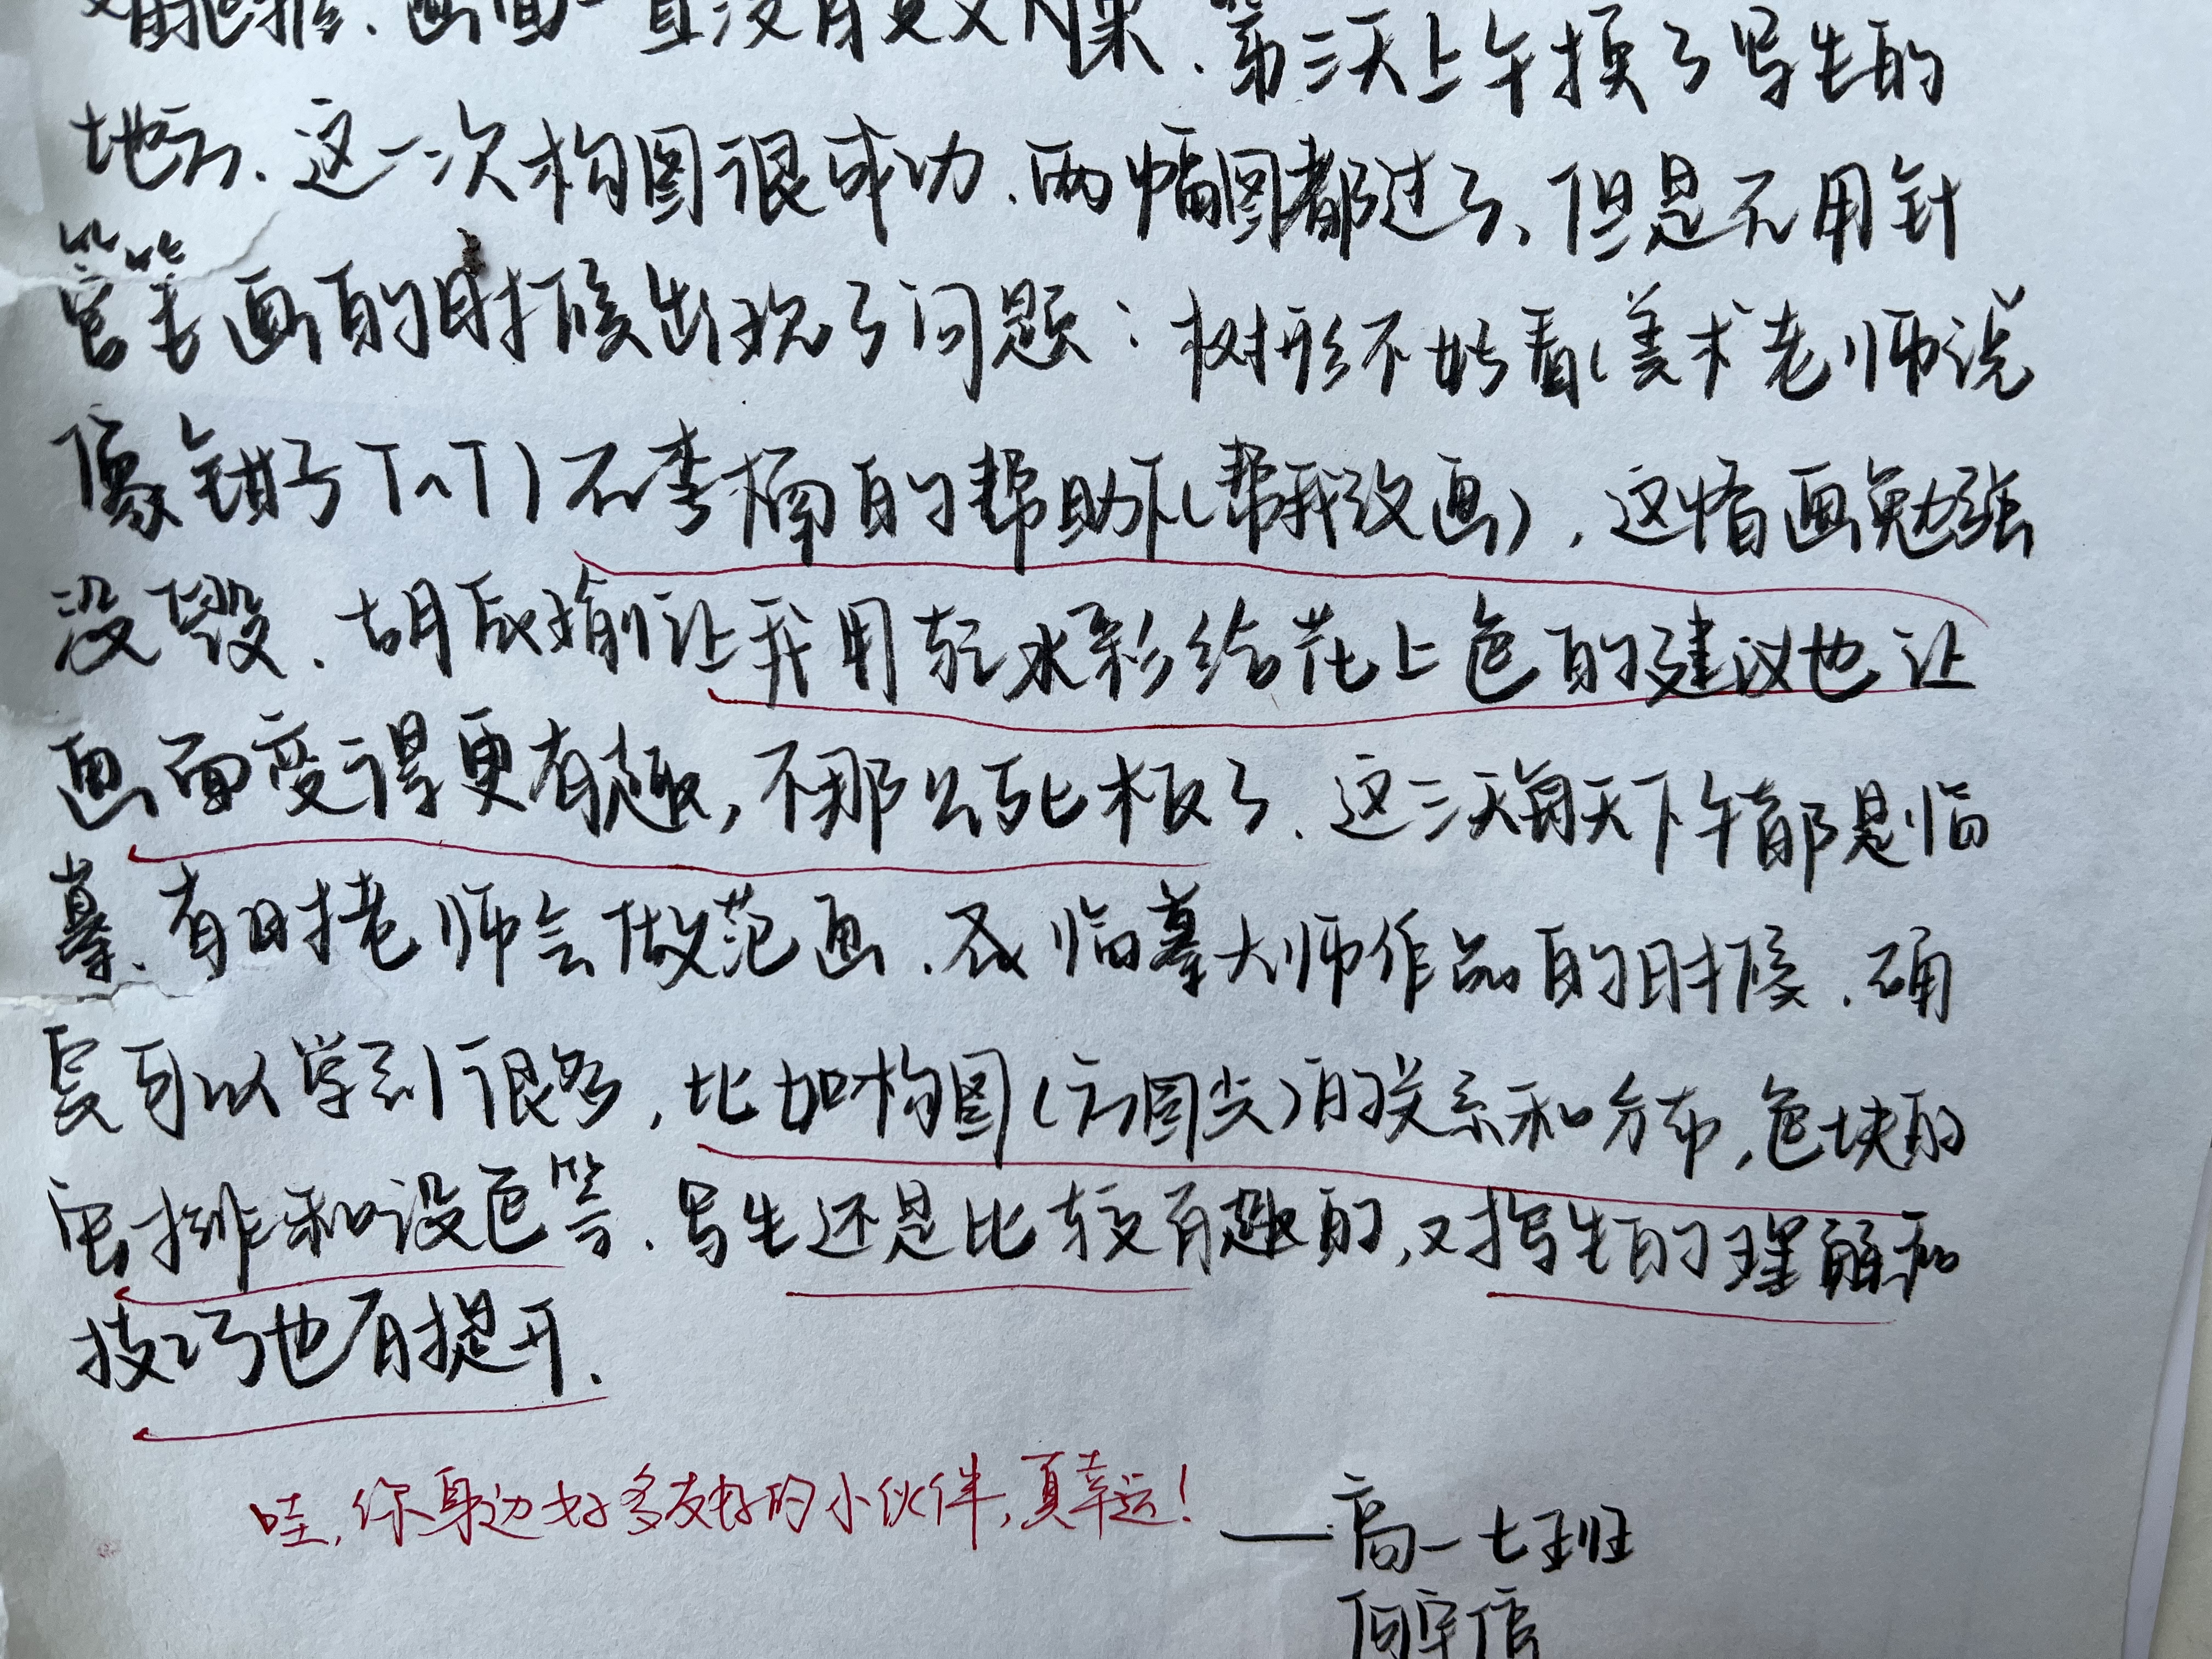 画面一直没有什么效果.第三天上午换了写生的
地方.这一次构图很成功.两幅图都过了,但是在用针
管笔画的时候出现了问题:树形不好看(美术老师说
像钳子T^T)在李楠的帮助下(帮我改画),这幅画勉强
没毁.胡辰瑜让我用轻水彩给花上色的建议也让
画面变得更有趣,不那么死板了.这三天每天下午都是临
摹.有时老师会做范画.在临摹大师作品的时候.确
实可以学到很多,比如构图(方圆尖)的关系和分布,色块的
安排和设色等.写生还是比较有趣的,对写生的理解和
技巧也有提升.
哇,你身边好多友好的小伙伴,真幸运!
——高一七班
何宇倌